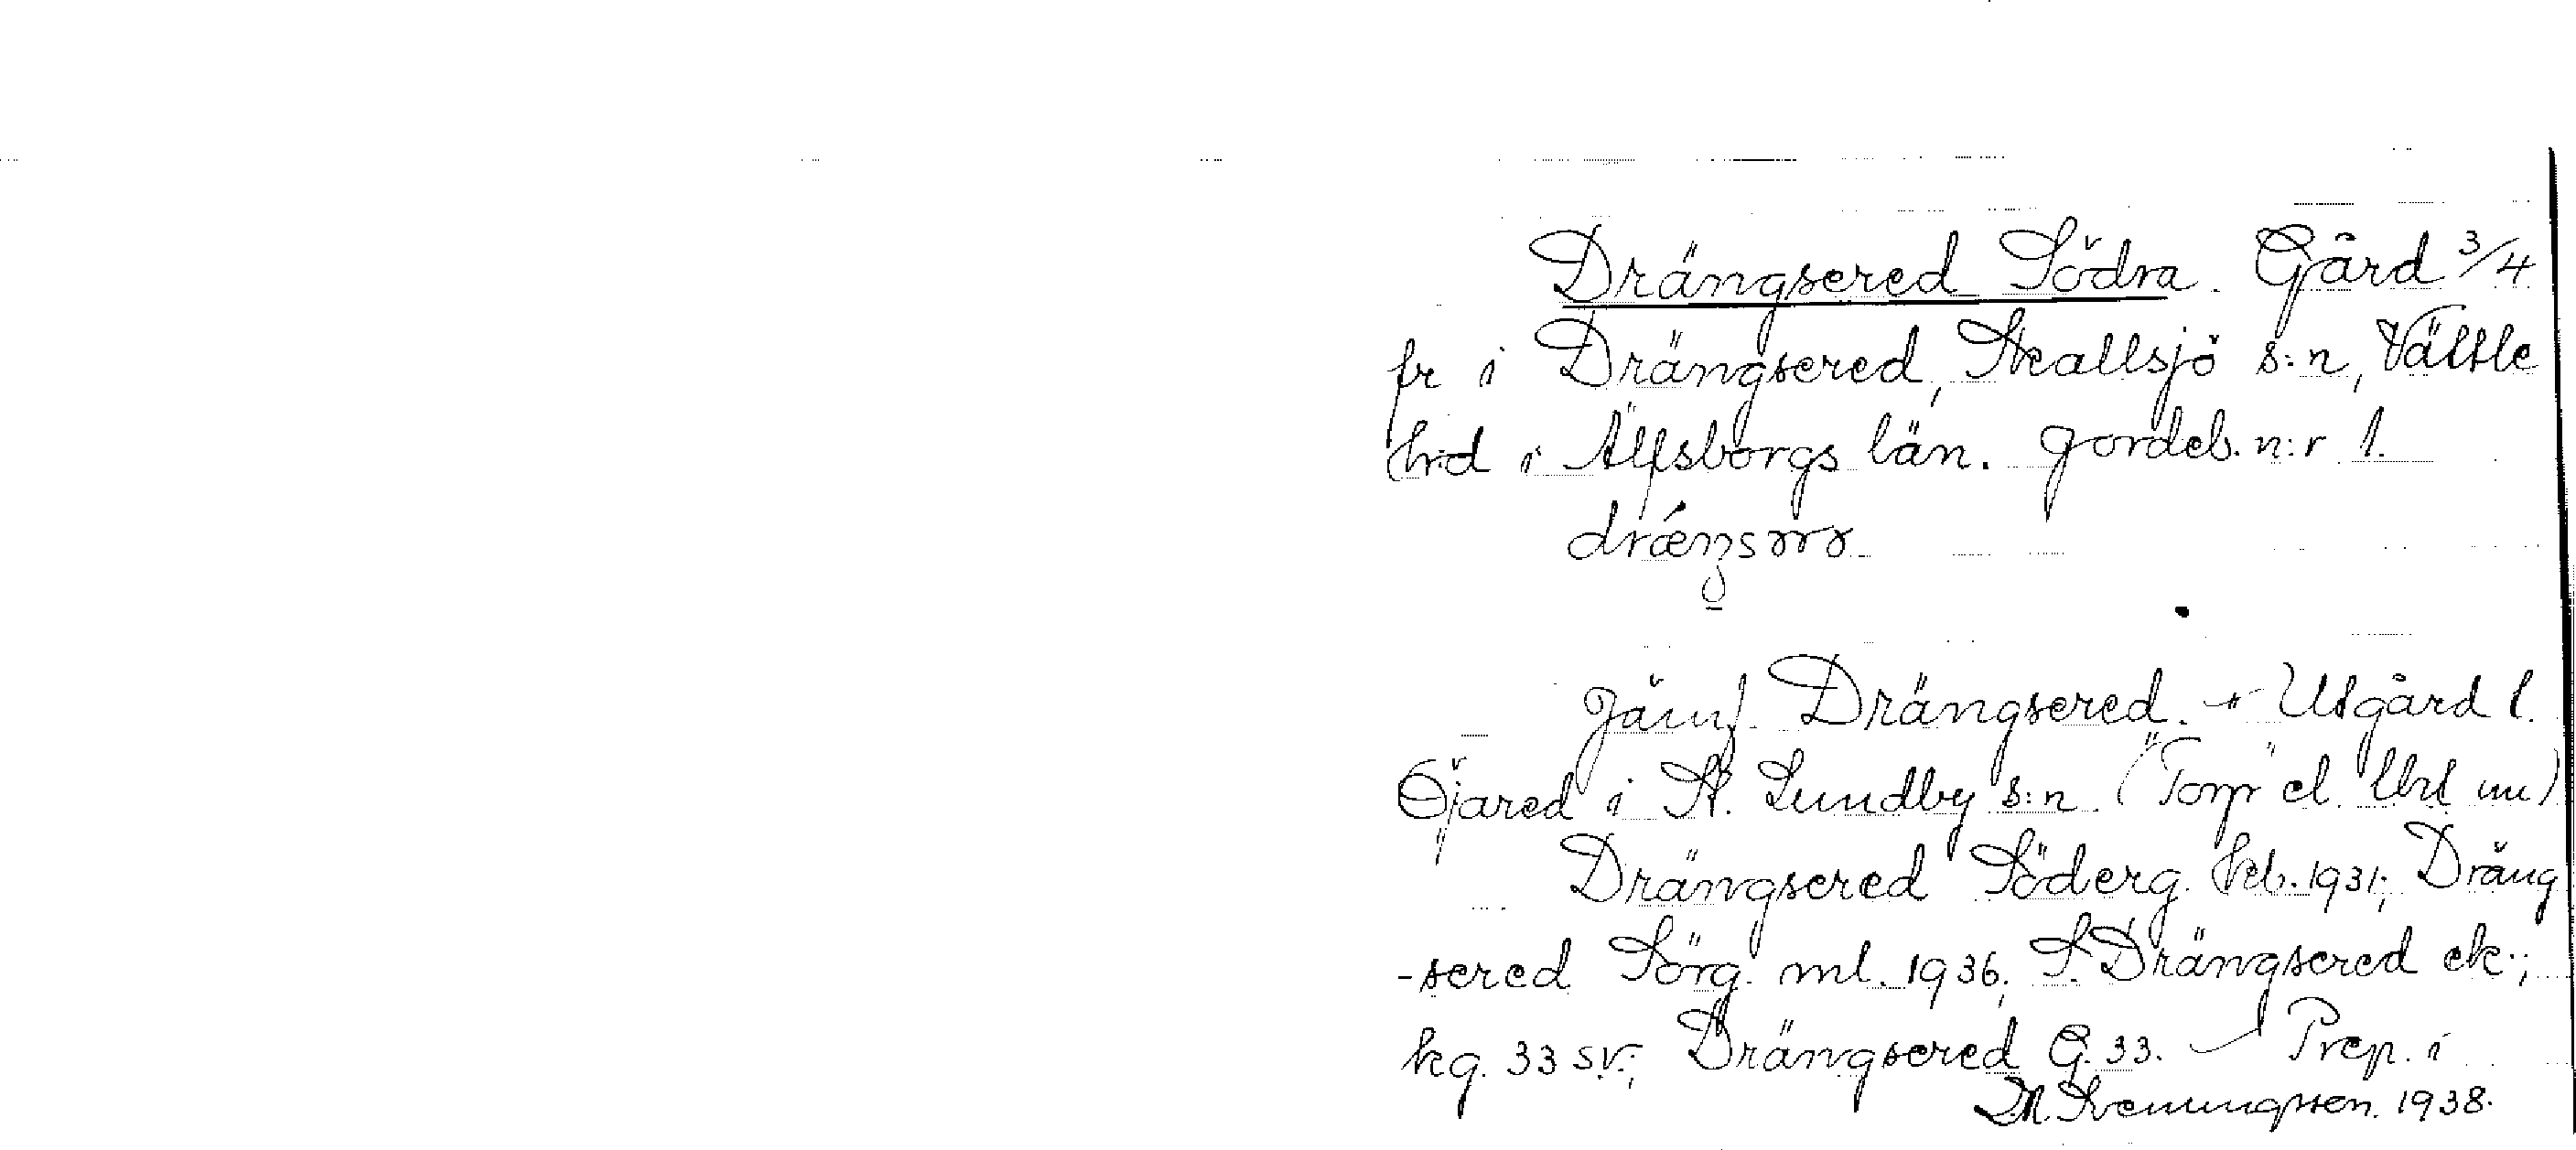 Drängsered Södra. Gård 3/4
fr i Drängsered, Skallsjö s:n, Vättle
hrd i Älfsborgs län. Jordeb. n:r 1.
Jämf. Drängsered. + Utgård l.
Öjared i St. Lundby s:n. ("Torp" el. lht nu)
Drängsered Söderg. kb. 1931; Dräng
-sered Sörg. ml. 1936; S. Drängsered ek.;
kg. 33 sv.; Drängsered G. 33. — Prep. i
M. Svenungsson. 1938.